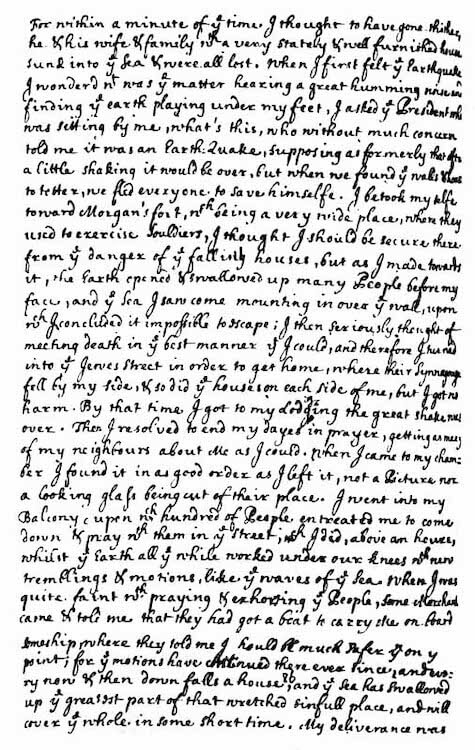 For within a minute of yᵉ time I thought to have gone thither,
he & his wife & family wᵗʰ a very stately & well furnished house
sunk into yᵉ Sea & were all lost. When I first felt yᵉ Earthquake
I wonderd wᵗ was yᵉ matter hearing a great humming noise and
finding yᵉ earth playing under my feet, I asked yᵉ President who
was sitting by me, what's this, who without much concern
told me it was an Earth-Quake, supposing as formerly that after
a little shaking it would be over, but when we found yᵉ walls &
to totter, we fled everyone to save himselfe. I betook my selfe
toward Morgan's fort, wᶜʰ being a very wide place, when they
used to exercise Souldiers, I thought I should be secure there
from yᵉ danger of yᵉ falling houses, but as I made towards
it, the Earth opened & swallowed up many People before my
face, and yᵉ Sea I saw come mounting in over yᵉ wall, upon
wᶜʰ I concluded it impossible to escape; I then seriously thought of
meeting death in yᵉ best manner yᵗ I could, and therefore I turned
into yᵉ Jewes Street in order to get home, where their Synagogue
fell by my side, & so did yᵉ houses on each side of me, but I got no
harm. By that time I got to my Lodging the great shake was
over. Then I resolved to end my dayes in prayer, getting as many
of my neighbours about Me as I could. When I came to my cham-
ber I found it in as good order as I left it, not a Picture nor
a looking glass being out of their place. I went into my
Balcony upon wᶜʰ hundred of People entreated me to come
down & pray wᵗʰ them in yᵉ Street, wᶜʰ I did, above an houre,
whilst yᵉ Earth all yᵉ while worked under our knees wᵗʰ new
tremblings & motions, like yᵉ waves of yᵉ Sea. When I was
quite faint wᵗʰ praying & exhorting yᵉ People, some Merchants
came & told me that they had got a boat to carry me on board
some ship, where they told me I should be much safer yⁿ on yᵉ
point; for yᵉ motions have continued there ever since, and eve-
ry now & then down falls a house, and yᵉ Sea has swallowed
up yᵉ greatest part of that wretched sinfull place, and will
cover yᵉ whole in some short time. My deliverance was